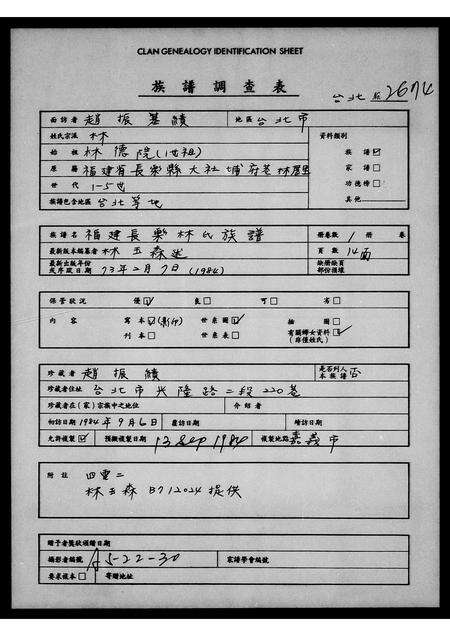 CLAN GENEALOGY IDENTIFICATION SHEET
族譜調查表
台北 2674
面訪者 趙振績 地區 台北市
姓氏宗派 林 資料類別
始祖 林德院(1世祖) 族譜☑
原籍 福建省長 縣大社埔 家譜□
世代 1-5世 功德榜□
族譜包含地區 台北等地 其他
族譜名 福建長 林氏族譜 冊卷數 1 冊 卷
最新版本編纂者 林玉森述 頁數 14面
最新出版年份或序跋日期 73年2月7日(1984) 缺冊缺頁部份損壞
保管狀況 優☑ 良□ 可□ 劣□
內容 寫本☑(影印) 世系圖☑ 插圖□
刊本□ 世系表□ 有關婦女資料☑(非僅姓氏)
珍藏者 趙振績 是否列入本族譜 否
珍藏者住址 台北市興隆路二段220巷
珍藏者在(家)宗族中之地位 介紹者
初訪日期 1984年9月6日 覆訪日期 續訪日期
允許複製☑ 預擬複製日期 13 Sep 1984 複製地點 嘉義市
附註 四重二
林玉森 B712024提供
贈予者獎狀頒贈日期
攝影者編號 A5-22-30 家譜學會編號
要求複本□ 寄贈地址